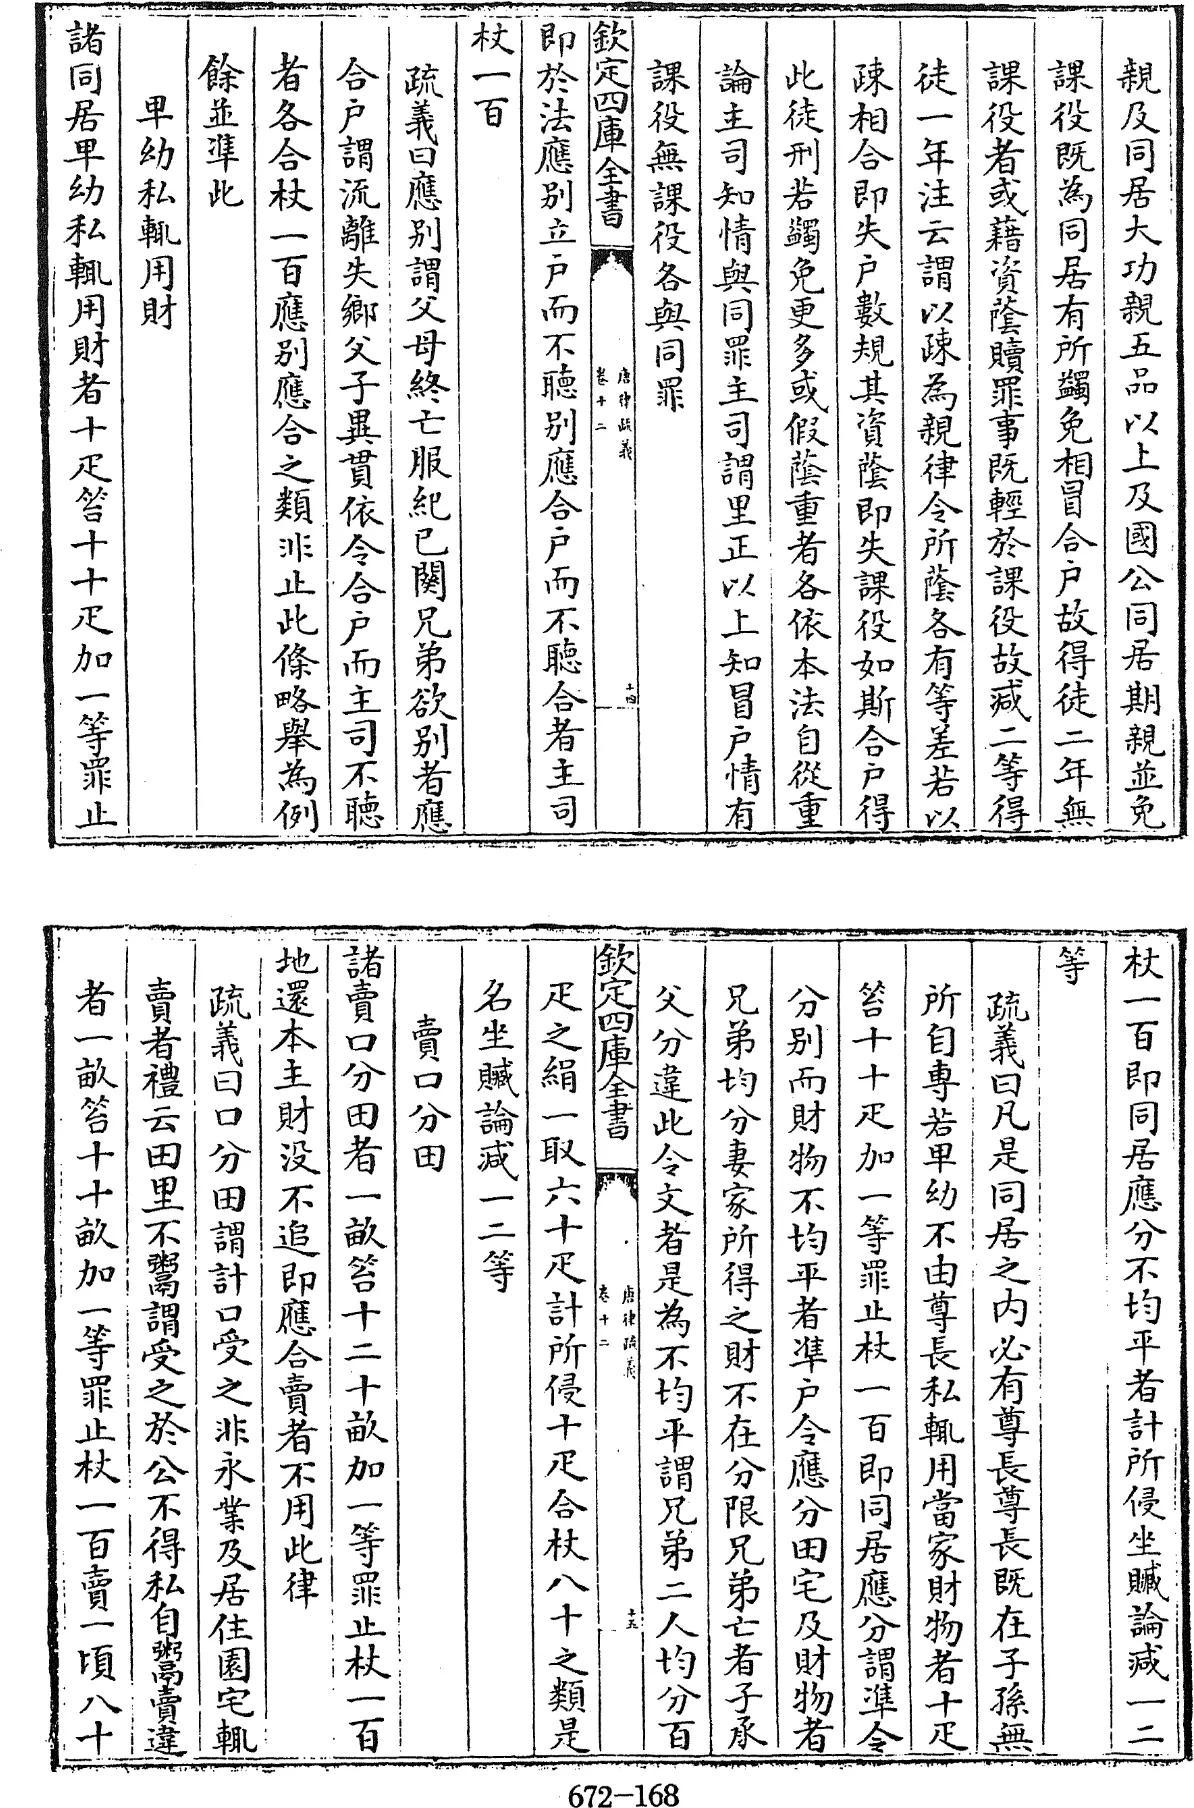 親及同居大功親五品以上及國公同居期親並免
課役既為同居有所蠲免相冒合户故得徒二年無
課役者或藉資䕃贖罪事既輕於課役故減二等得
徒一年注云謂以疎為親律令所䕃各有等差若以
疎相合即失户數規其資䕃即失課役如斯合户得
此徒刑若蠲免更多或假䕃重者各依本法自從重
論主司知情與同罪主司謂里正以上知冒户情有
課役無課役各與同罪
欽定四庫全書
唐律疏義
卷十二
十四
即於法應别立户而不聽别應合户而不聽合者主司
杖一百
疏義曰應别謂父母終亡服紀已闋兄弟欲别者應
合户謂流離失鄉父子異貫依令合户而主司不聽
者各合杖一百應别應合之類非止此條略舉為例
餘並準此
卑幼私輒用財
諸同居卑幼私輒用財者十疋笞十十疋加一等罪止
杖一百即同居應分不均平者計所侵坐贓論減一二
等
疏義曰凡是同居之内必有尊長尊長既在子孫無
所自專若卑幼不由尊長私輒用當家財物者十疋
笞十十疋加一等罪止杖一百即同居應分謂準令
分别而財物不均平者準户令應分田宅及財物者
兄弟均分妻家所得之財不在分限兄弟亡者子承
父分違此令文者是為不均平謂兄弟二人均分百
欽定四庫全書
唐律疏義
卷十二
十五
疋之絹一取六十疋計所侵十疋合杖八十之類是
名坐贓論減一二等
賣口分田
諸賣口分田者一畝笞十二十畝加一等罪止杖一百
地還本主財没不追即應合賣者不用此律
疏義曰口分田謂計口受之非永業及居住園宅輒
賣者禮云田里不鬻謂受之於公不得私自鬻賣違
者一畝笞十十畝加一等罪止杖一百賣一頃八十
672-168